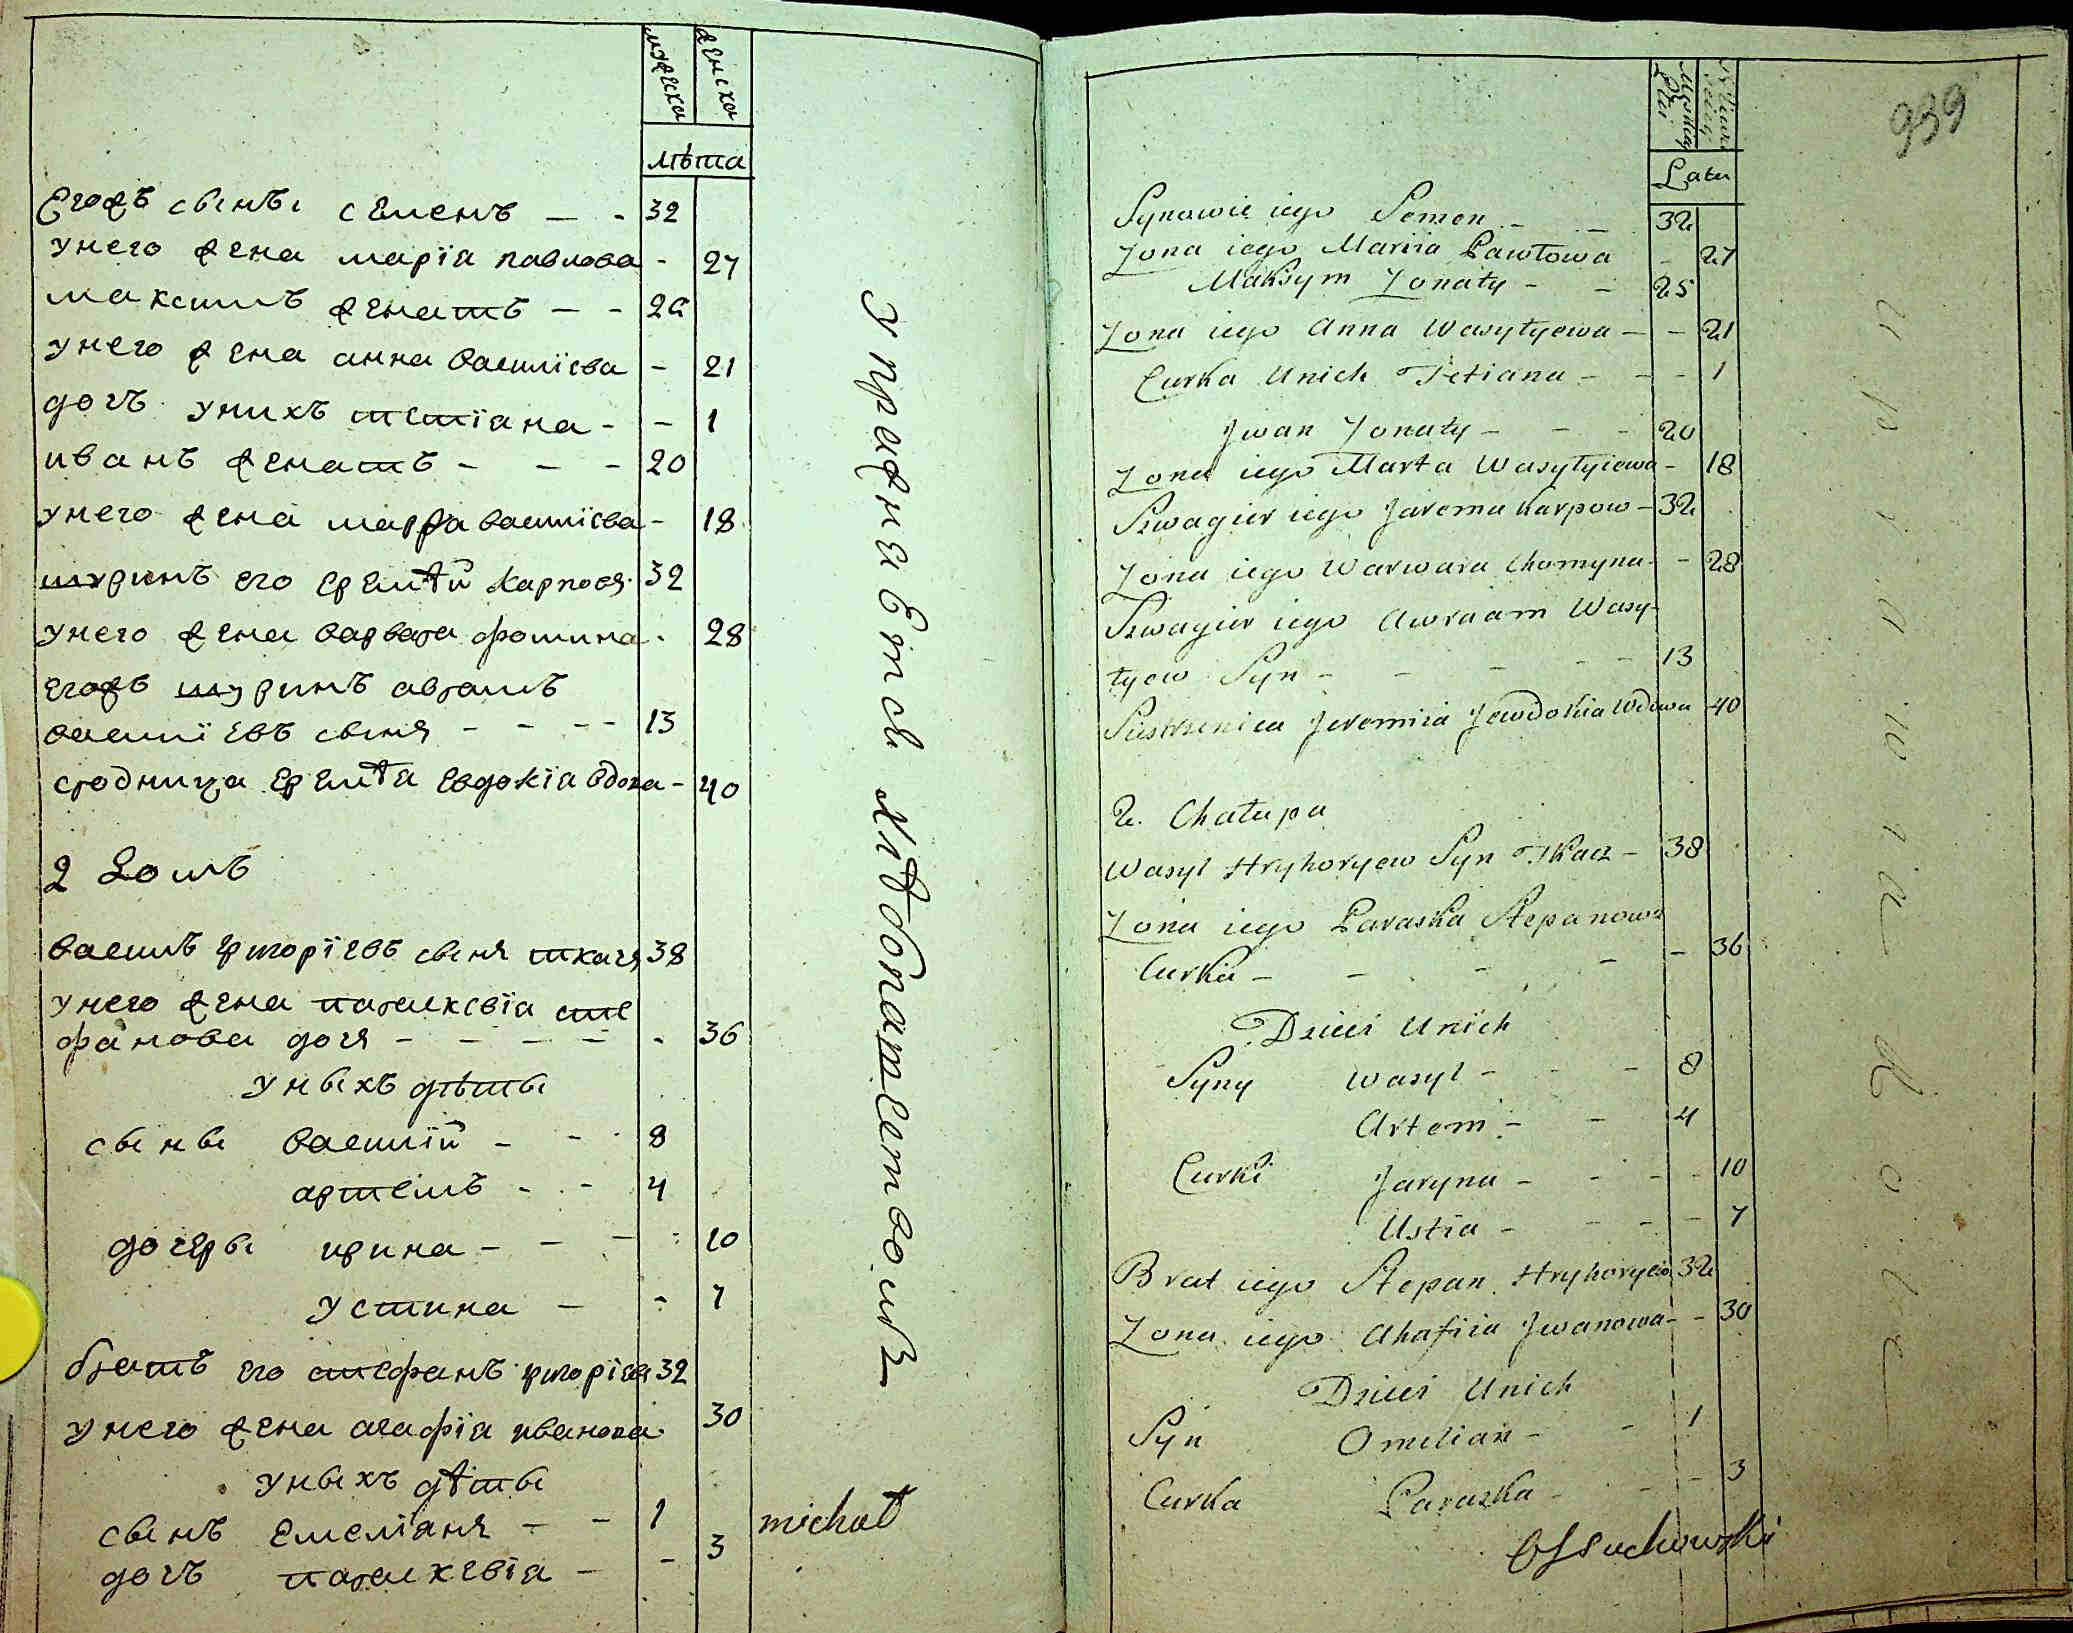 мужеска женска
лѣта
Егожъ сынъı семенъ - - 32
унего жена марїа павлова - 27
максимъ женатъ - - 25
унего жена анна василїева - 21
дочъ унихъ тетїана - - 1
иванъ женатъ - - - 20
унего жена марфа василїева - 18
шуринъ его еремѣй карповъ 32
унего жена варвара фомина - 28
егожъ шуринъ аврамъ
василїевъ сынъ - - - - 13
сродница еремѣа евдокїа вдова - 40
2 Домъ
василь григорїевъ сынъ ткачъ 38
унего жена параскевїа сте
фанова дочъ - - - - - 36
уныхъ дѣты
сыны василїй - - 8
артемъ - - 4
дочеры ирина - - - - 10
устина - - 7
братъ его стефанъ григорїевъ 32
унего жена агафїа иванова 30
уныхъ дѣты
сынъ емелїанъ - - 1
дочъ параскевїа - - 3
упражняются хлѣбопашествомъ
michał
939
Latu
Synowie iego Semen - - 32
Żona iego Mariia Pawłowa - 27
Maksym Żonaty - - 25
Żona iego Anna Wasyłyewa - - 21
Curka Unich Tetiana - - - 1
Jwan Żonaty - - - 20
Żona iego Marta Wasyłyiewa - 18
Szwagier iego Jarema Karpow - 32
Żona iego Warwara Chomyna - - 28
Szwagier iego Awraam Wasy-
łyew Syn - - - - - 13
Siestrzenica Jeremiia Jewdokia Wdowa 40
2. Chałupa
Wasyl Hryhoryew Syn Tkacz - 38
Żona iego Paraska Stepanowa
Curka - - - - - 36
Dzieci Unich
Syny Wasyl - - - 8
Artem - - 4
Curki Jaryna - - - - 10
Ustia - - - - 7
Brat iego Stepan Hryhoryew 32
Żona iego Ahafiia Jwanowa - - 30
Dzieci Unich
Syn Omelian - - 1
Curka Paraska - - - 3
Ossuchowski